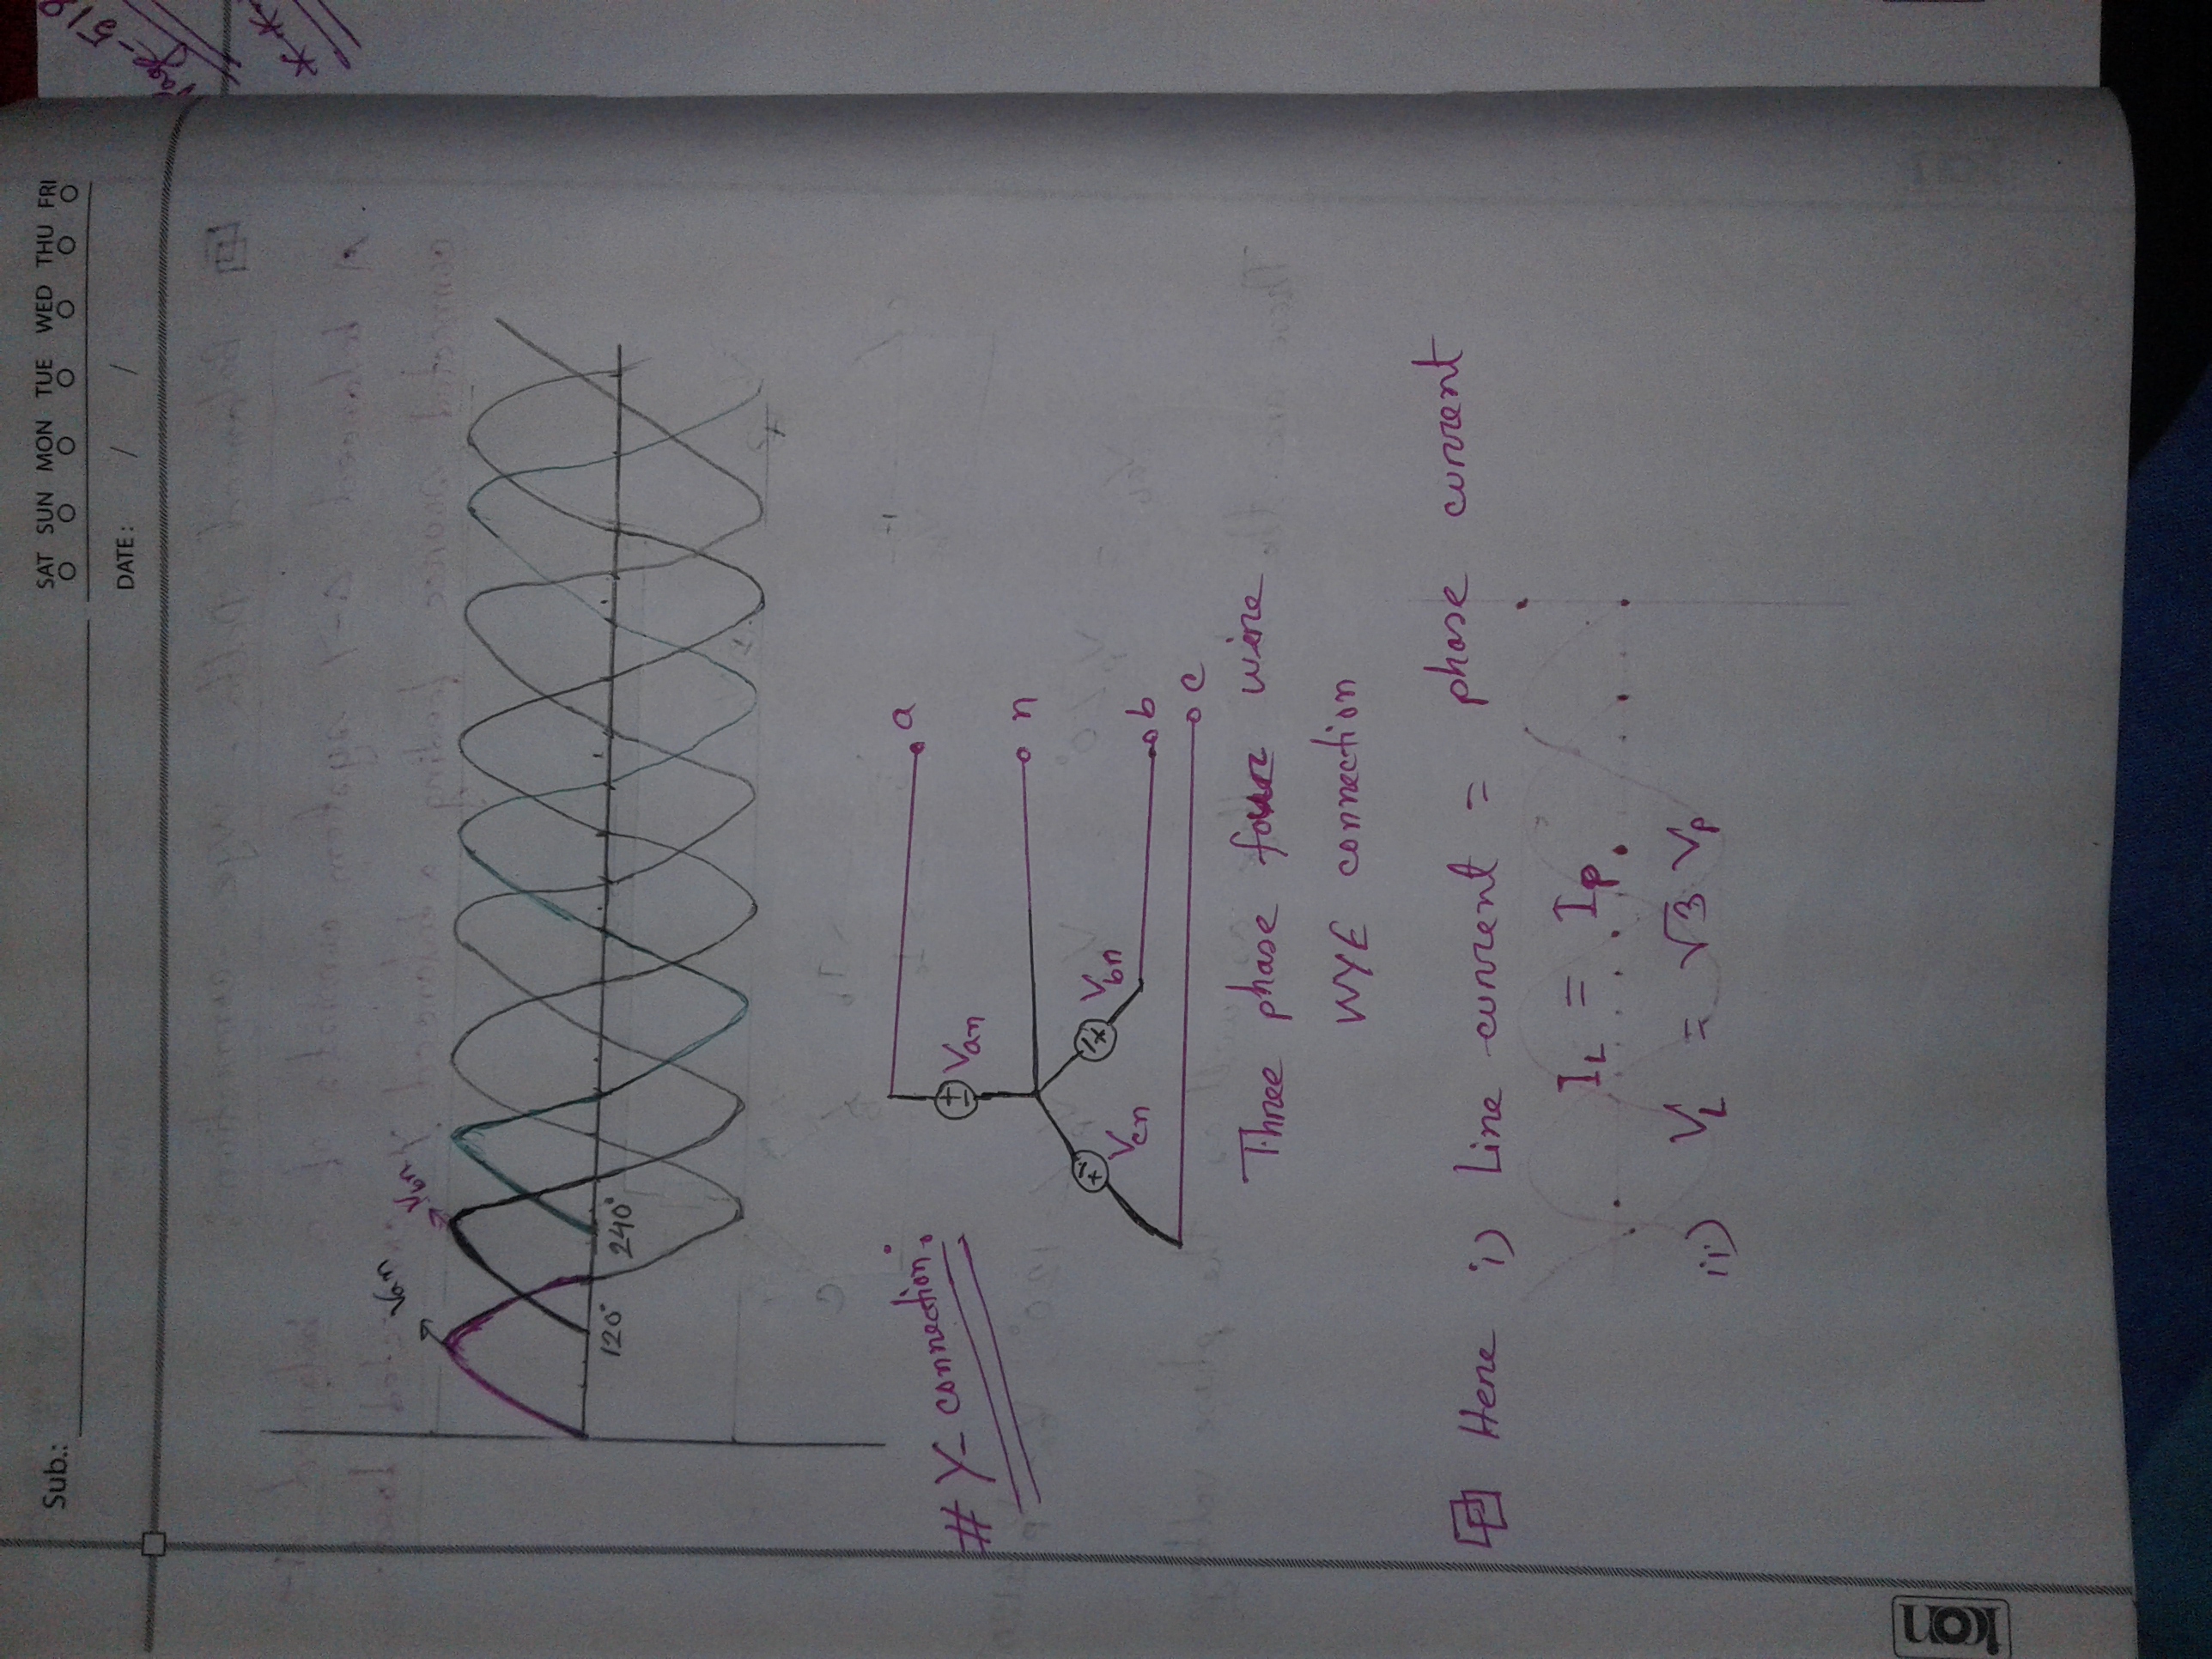 Sub.:
SAT SUN MON TUE WED THU FRI
DATE: / /
Page-519
**
Van
Vbn
120°
240°
# Y- connection:
a
Van
n
Vcn
Vbn
b
c
Three phase four wire
WYE connection
Here i) Line current = phase current
I_L = I_P
ii) V_L = √3 V_P
icon